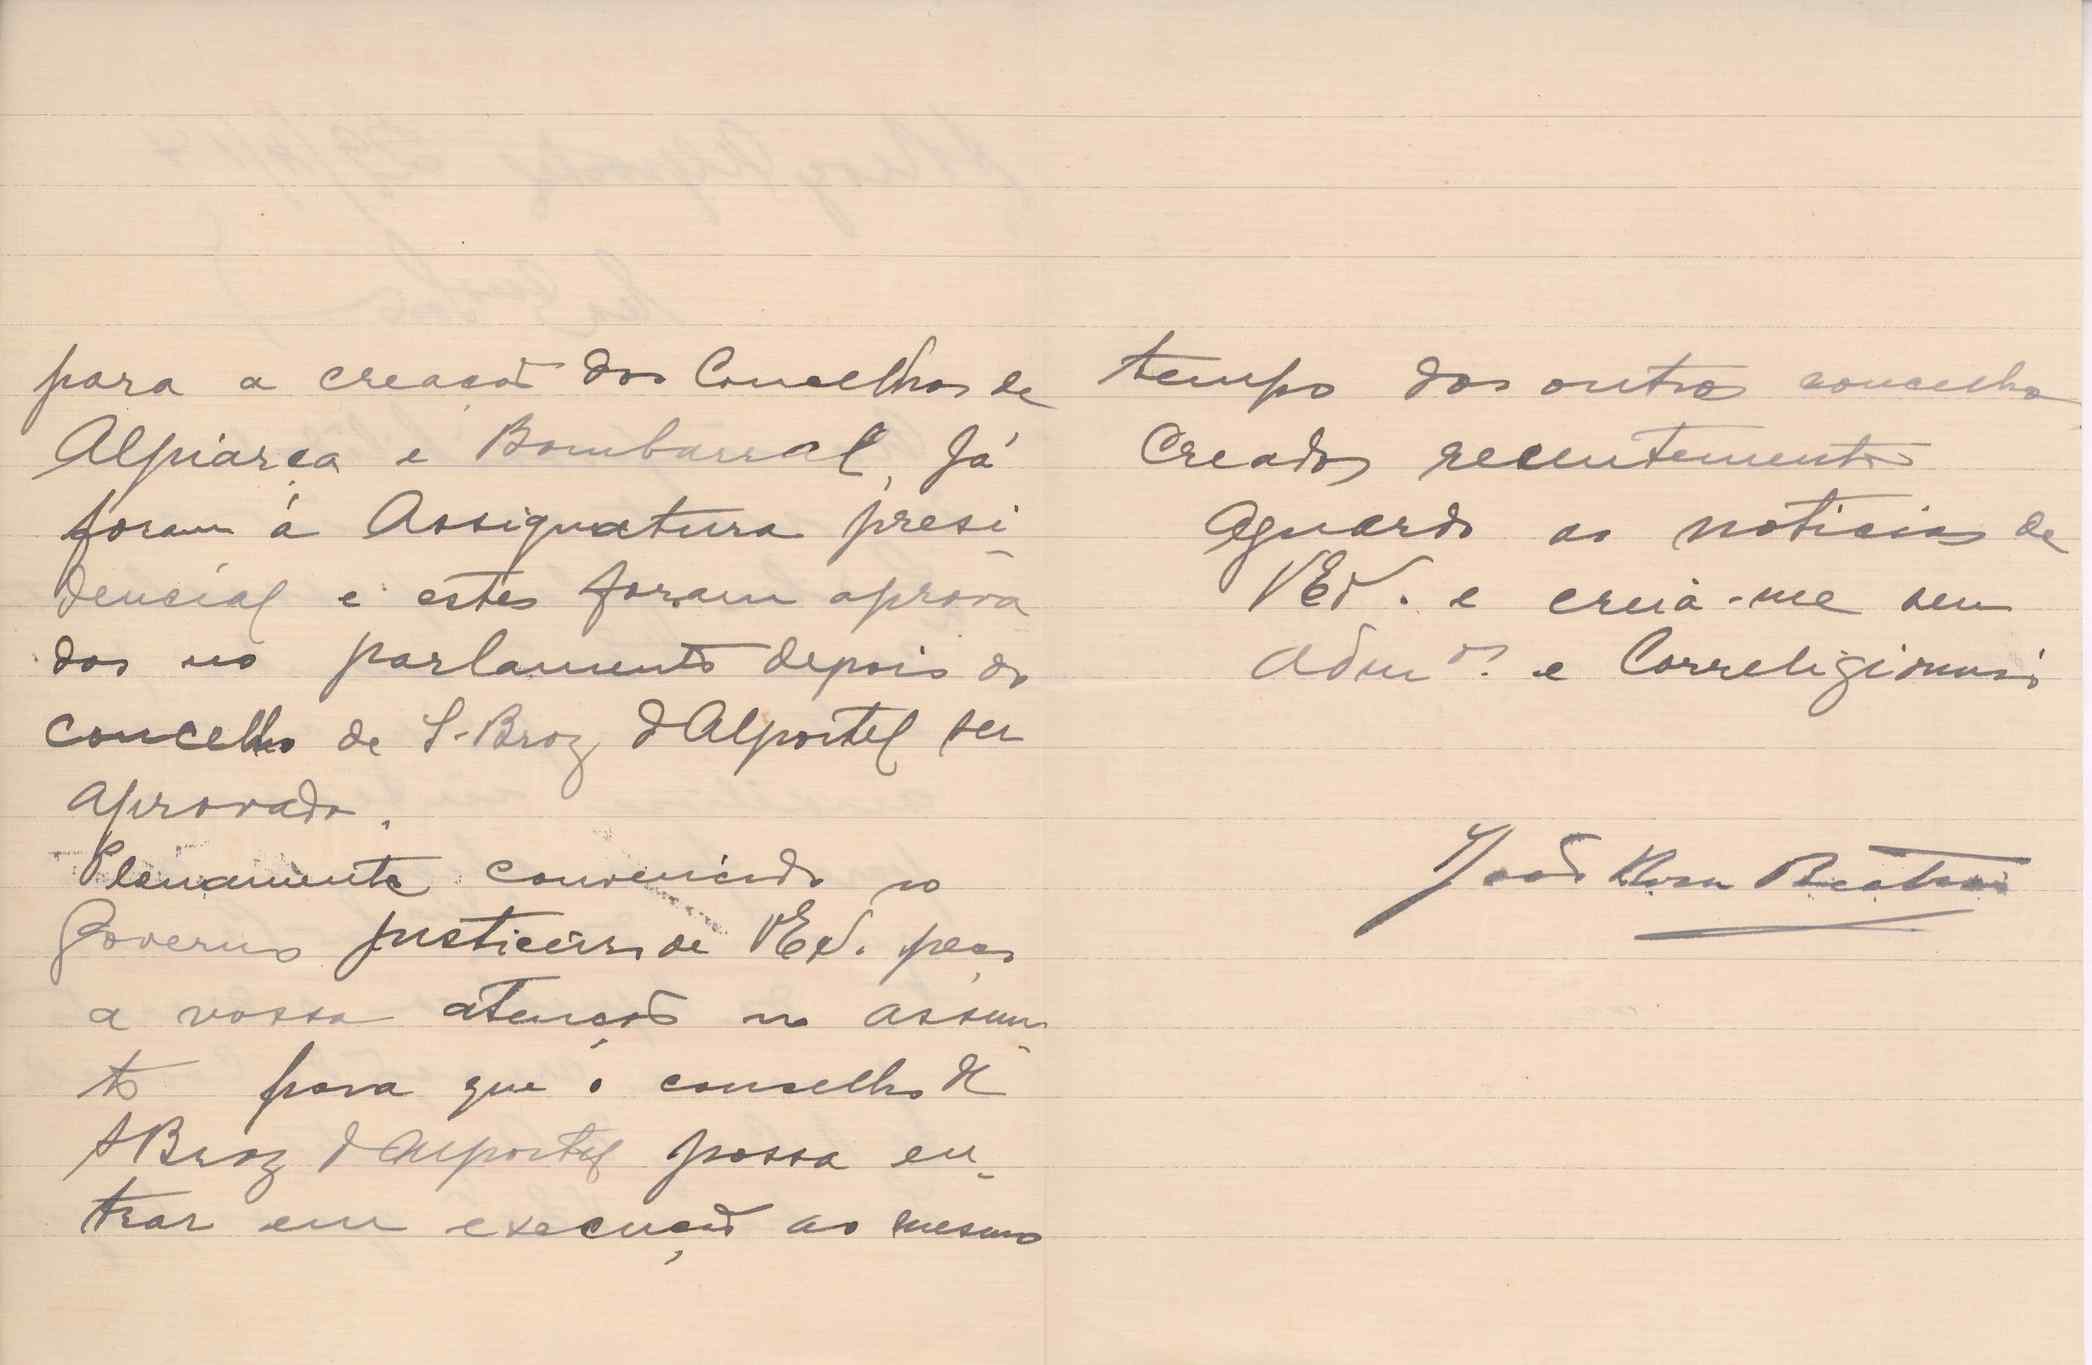 para a creação dos Concelhos de
Alpiarça e Bombarral, já
foram á Assignatura presi-
dencial e estes foram aprova
dos no parlamento depois do
concelho de S. Braz d'Alportel ser
aprovado.
Plenamente convencido no
Governo justiceiro de V Ex.ª peço
a vossa atenção no assum-
to para que o conselho de
S Braz d'Alportel possa en-
trar em execução ao mesmo
tempo dos outros concelhos
Creados recentemente
Aguardo as noticias de
V Ex.ª e creia-me seu
Adm.or e Correligionario
João Rosa Beatriz